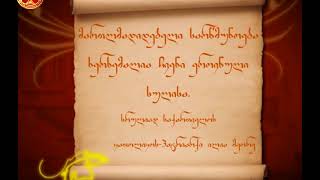 მართლმადიდებელი სარწმუნოება
ხერხემალია ჩვენი ეროვნული
სულისა.
სრულიად საქართველოს
კათოლიკოს-პატრიარქი ილია მეორე